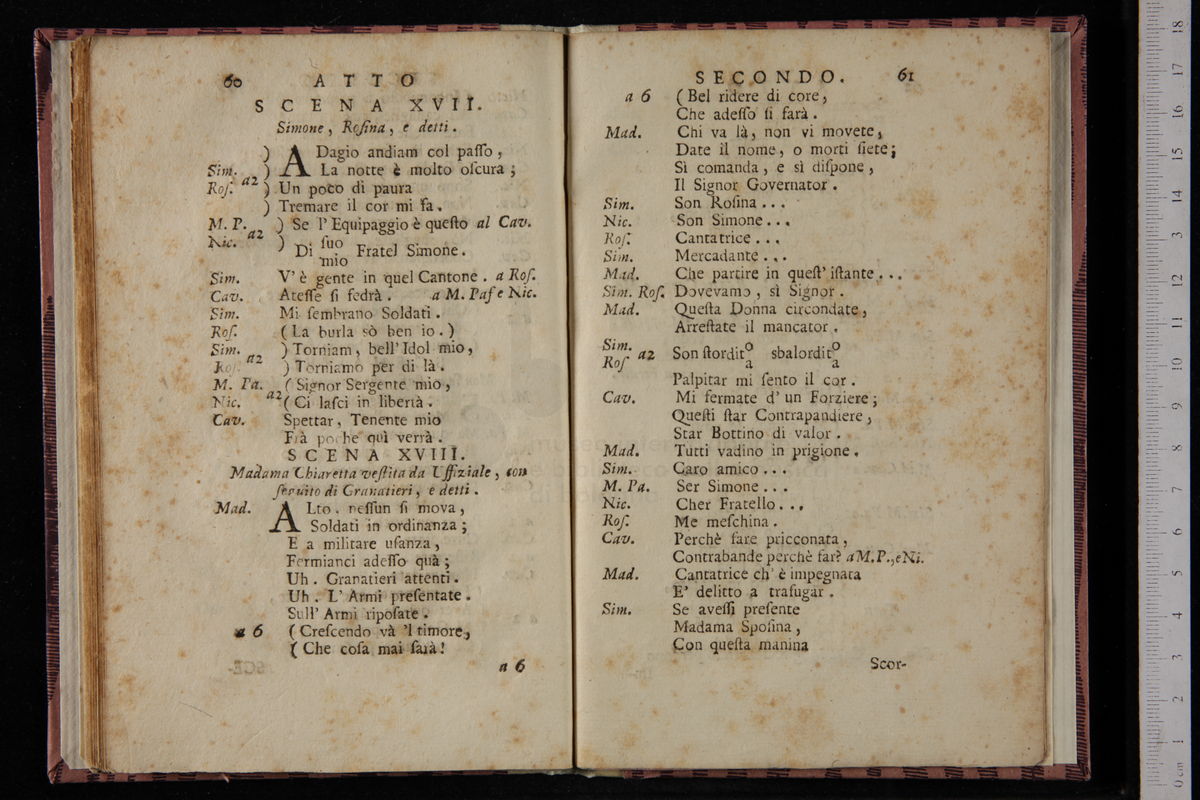 60 ATTO
SCENA XVII.
Simone, Rosina, e detti.
) ADagio andiam col passo,
Sim. ) La notte è molto oscura;
Ros. a2 ) Un poco di paura
) Tremare il cor mi fa.
M. P. ) Se l' Equipaggio è questo al Cav.
Nic. a2 ) Di suo mio Fratel Simone.
Sim. V' è gente in quel Cantone. a Ros.
Cav. Atesse si fedrà. a M. Pas e Nic.
Sim. Mi sembrano Soldati.
Ros. (La burla sò ben io.)
Sim. a2 ) Torniam, bell' Idol mio,
Ros. ) Torniamo per di là.
M. Pa. ( Signor Sergente mio,
Nic. a2 ( Ci lasci in libertà.
Cav. Spettar, Tenente mio
Frà poche quì verrà.
SCENA XVIII.
Madama Chiaretta vestita da Uffiziale, con
seguito di Granatieri, e detti.
Mad. ALto. nessun si mova,
Soldati in ordinanza;
E a militare usanza,
Fermianci adesso quà;
Uh. Granatieri attenti.
Uh. L' Armi presentate.
Sull' Armi riposate.
a 6 ( Crescendo và 'l timore,
( Che cosa mai sarà!
a 6
SECONDO. 61
a 6 (Bel ridere di core,
Che adesso si farà.
Mad. Chi va là, non vi movete,
Date il nome, o morti siete;
Sì comanda, e sì dispone,
Il Signor Governator.
Sim. Son Rosina...
Nic. Son Simone...
Ros. Cantatrice...
Sim. Mercadante...
Mad. Che partire in quest' istante...
Sim. Ros. Dovevamo, sì Signor.
Mad. Questa Donna circondate,
Arrestate il mancator.
Sim. Ros a2 Son stordit o a sbalordit o a
Palpitar mi sento il cor.
Cav. Mi fermate d' un Forziere;
Questi star Contrapandiere,
Star Bottino di valor.
Mad. Tutti vadino in prigione.
Sim. Caro amico...
M. Pa. Ser Simone...
Nic. Cher Fratello...
Ros. Me meschina.
Cav. Perchè fare pricconata,
Contrabande perchè far? a M. P., e Ni.
Mad. Cantatrice ch' è impegnata
E' delitto a trafugar.
Sim. Se avessi presente
Madama Sposina,
Con questa manina
Scor-